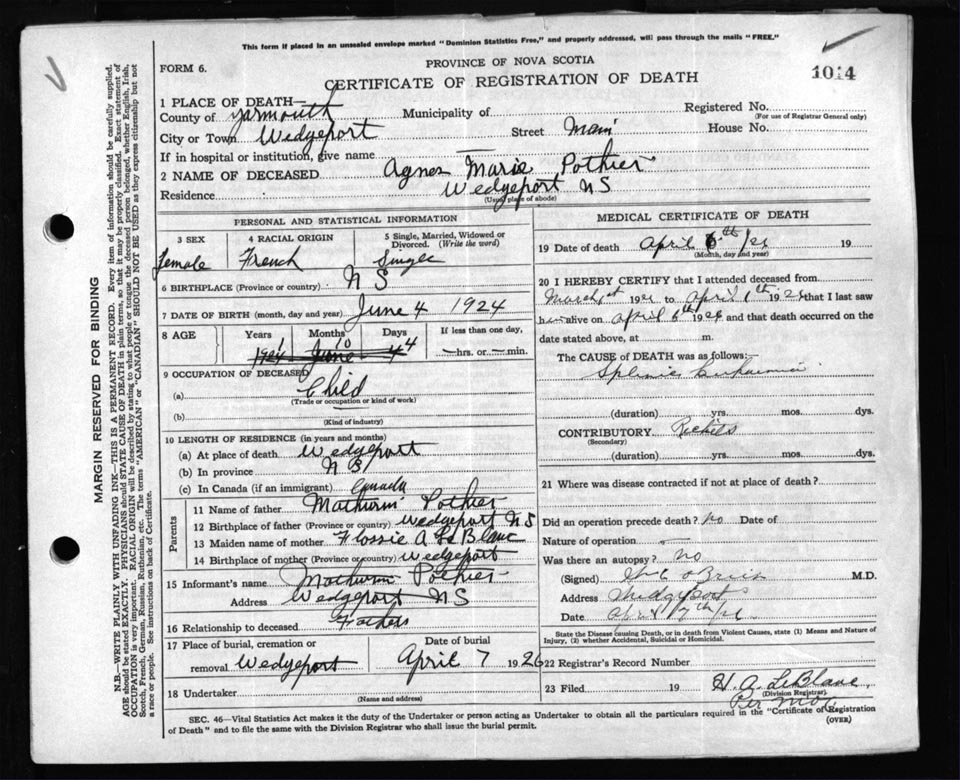 This form if placed in an unsealed envelope marked "Dominion Statistics Free," and properly addressed, will pass through the mails "FREE."
FORM 6.
PROVINCE OF NOVA SCOTIA
CERTIFICATE OF REGISTRATION OF DEATH
1014
MARGIN RESERVED FOR BINDING
N.B.—WRITE PLAINLY WITH UNFADING INK—THIS IS A PERMANENT RECORD. Every item of information should be carefully supplied.
AGE should be stated EXACTLY. PHYSICIANS should STATE CAUSE OF DEATH in plain terms, so that it may be properly classified. Exact statement of
OCCUPATION is very important. RACIAL ORIGIN will be described by stating to what people or tongue the deceased person belonged, whether English, Irish,
Scotch, French, German, Russian, Ruthenian, etc. The terms "AMERICAN" or "CANADIAN" SHOULD NOT BE USED as they express citizenship but not
a race or people. See instructions on back of Certificate.
1 PLACE OF DEATH—
County of Yarmouth Municipality of Registered No.
(For use of Registrar General only)
City or Town Wedgeport Street Main House No.
If in hospital or institution, give name
2 NAME OF DECEASED Agnes Marie Pothier
Residence Wedgeport NS
(Usual place of abode)
PERSONAL AND STATISTICAL INFORMATION
3 SEX 4 RACIAL ORIGIN 5 Single, Married, Widowed or Divorced. (Write the word)
Female French Single
6 BIRTHPLACE (Province or country) N S
7 DATE OF BIRTH (month, day and year) June 4 1924
8 AGE Years Months Days If less than one day,
1 10 4
1924 June 4 —hrs. or —min.
9 OCCUPATION OF DECEASED
(a) Child
(Trade or occupation or kind of work)
(b)
(Kind of industry)
10 LENGTH OF RESIDENCE (in years and months)
(a) At place of death Wedgeport
(b) In province N S
(c) In Canada (if an immigrant) Canada
Parents
11 Name of father Mathurin Pothier
12 Birthplace of father (Province or country) Wedgeport NS
13 Maiden name of mother Flossie A LeBlanc
14 Birthplace of mother (Province or country) Wedgeport
15 Informant's name Mathurin Pothier
Address Wedgeport NS
16 Relationship to deceased Father
17 Place of burial, cremation or Date of burial
removal Wedgeport April 7 1926
18 Undertaker
(Name and address)
MEDICAL CERTIFICATE OF DEATH
19 Date of death April 6th /26 19
(Month, day and year)
20 I HEREBY CERTIFY that I attended deceased from
March 1st 1926 to April 6th 1926 that I last saw
her alive on April 6th 1926 and that death occurred on the
date stated above, at m.
The CAUSE of DEATH was as follows:—
Splenic
(duration) yrs. mos. dys.
CONTRIBUTORY Rickets
(Secondary)
(duration) yrs. mos. dys.
21 Where was disease contracted if not at place of death?
Did an operation precede death? No Date of
Nature of operation —
Was there an autopsy? no
(Signed) O'Brien M.D.
Address Wedgeport
Date April 7th/26
State the Disease causing Death, or in death from Violent Causes, state (1) Means and Nature of
Injury, (2) whether Accidental, Suicidal or Homicidal.
22 Registrar's Record Number
23 Filed 19 H. A. LeBlanc
(Division Registrar)
Per
SEC. 46—Vital Statistics Act makes it the duty of the Undertaker or person acting as Undertaker to obtain all the particulars required in the "Certificate of Registration
of Death" and to file the same with the Division Registrar who shall issue the burial permit.
(OVER)